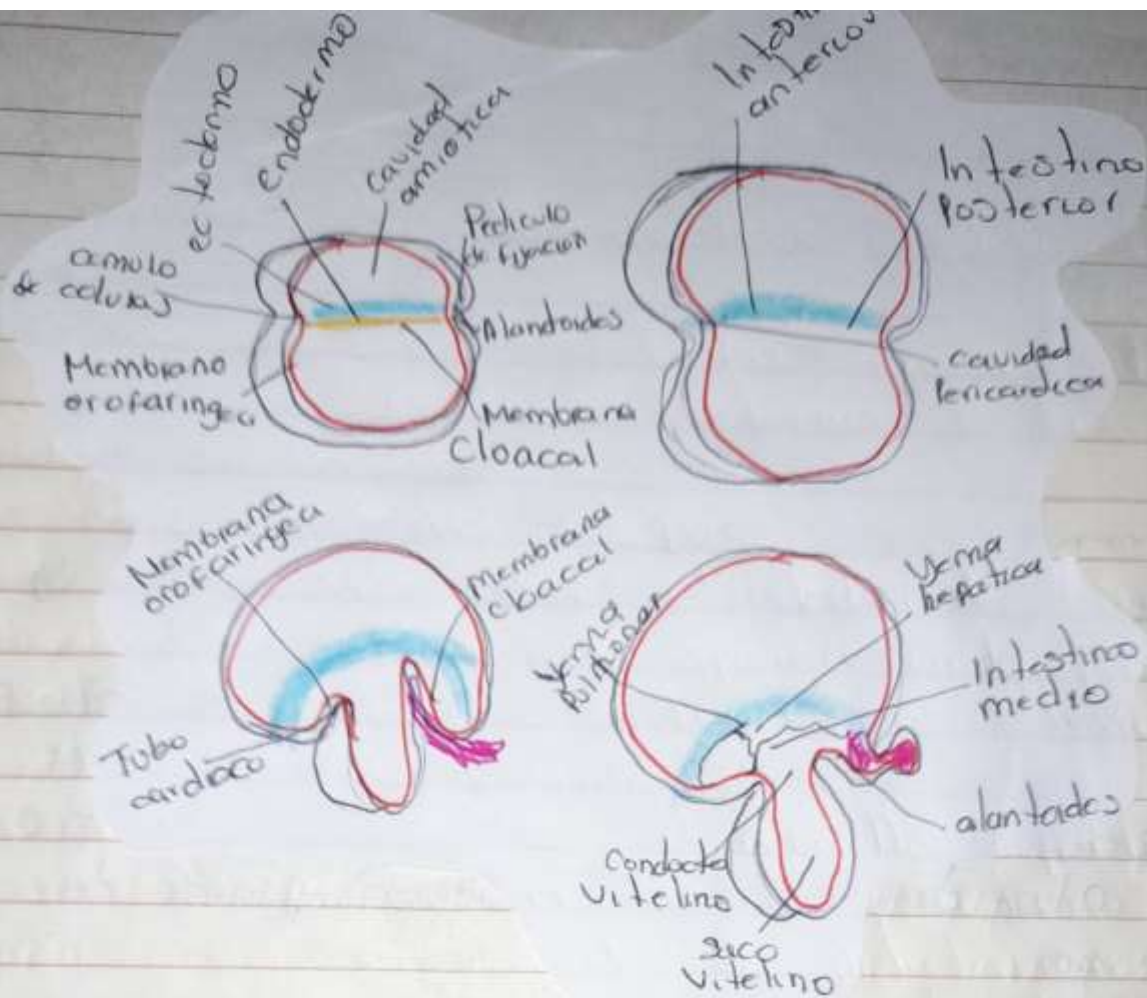 ectodermo
endodermo
cavidad
amiotica
Pediculo
de fijacion
amulo
de celulas
Alantoides
Membrano
orofaringea
Membrana
Cloacal
anterior
Intestino
Posterior
cavidad
Pericardica
Membrana
orofaringea
membrana
cloacal
Tubo
cardiaco
Yema
Pulmonar
Yema
hepatica
Intestino
medio
alantoides
Conducto
Vitelino
saco
Vitelino